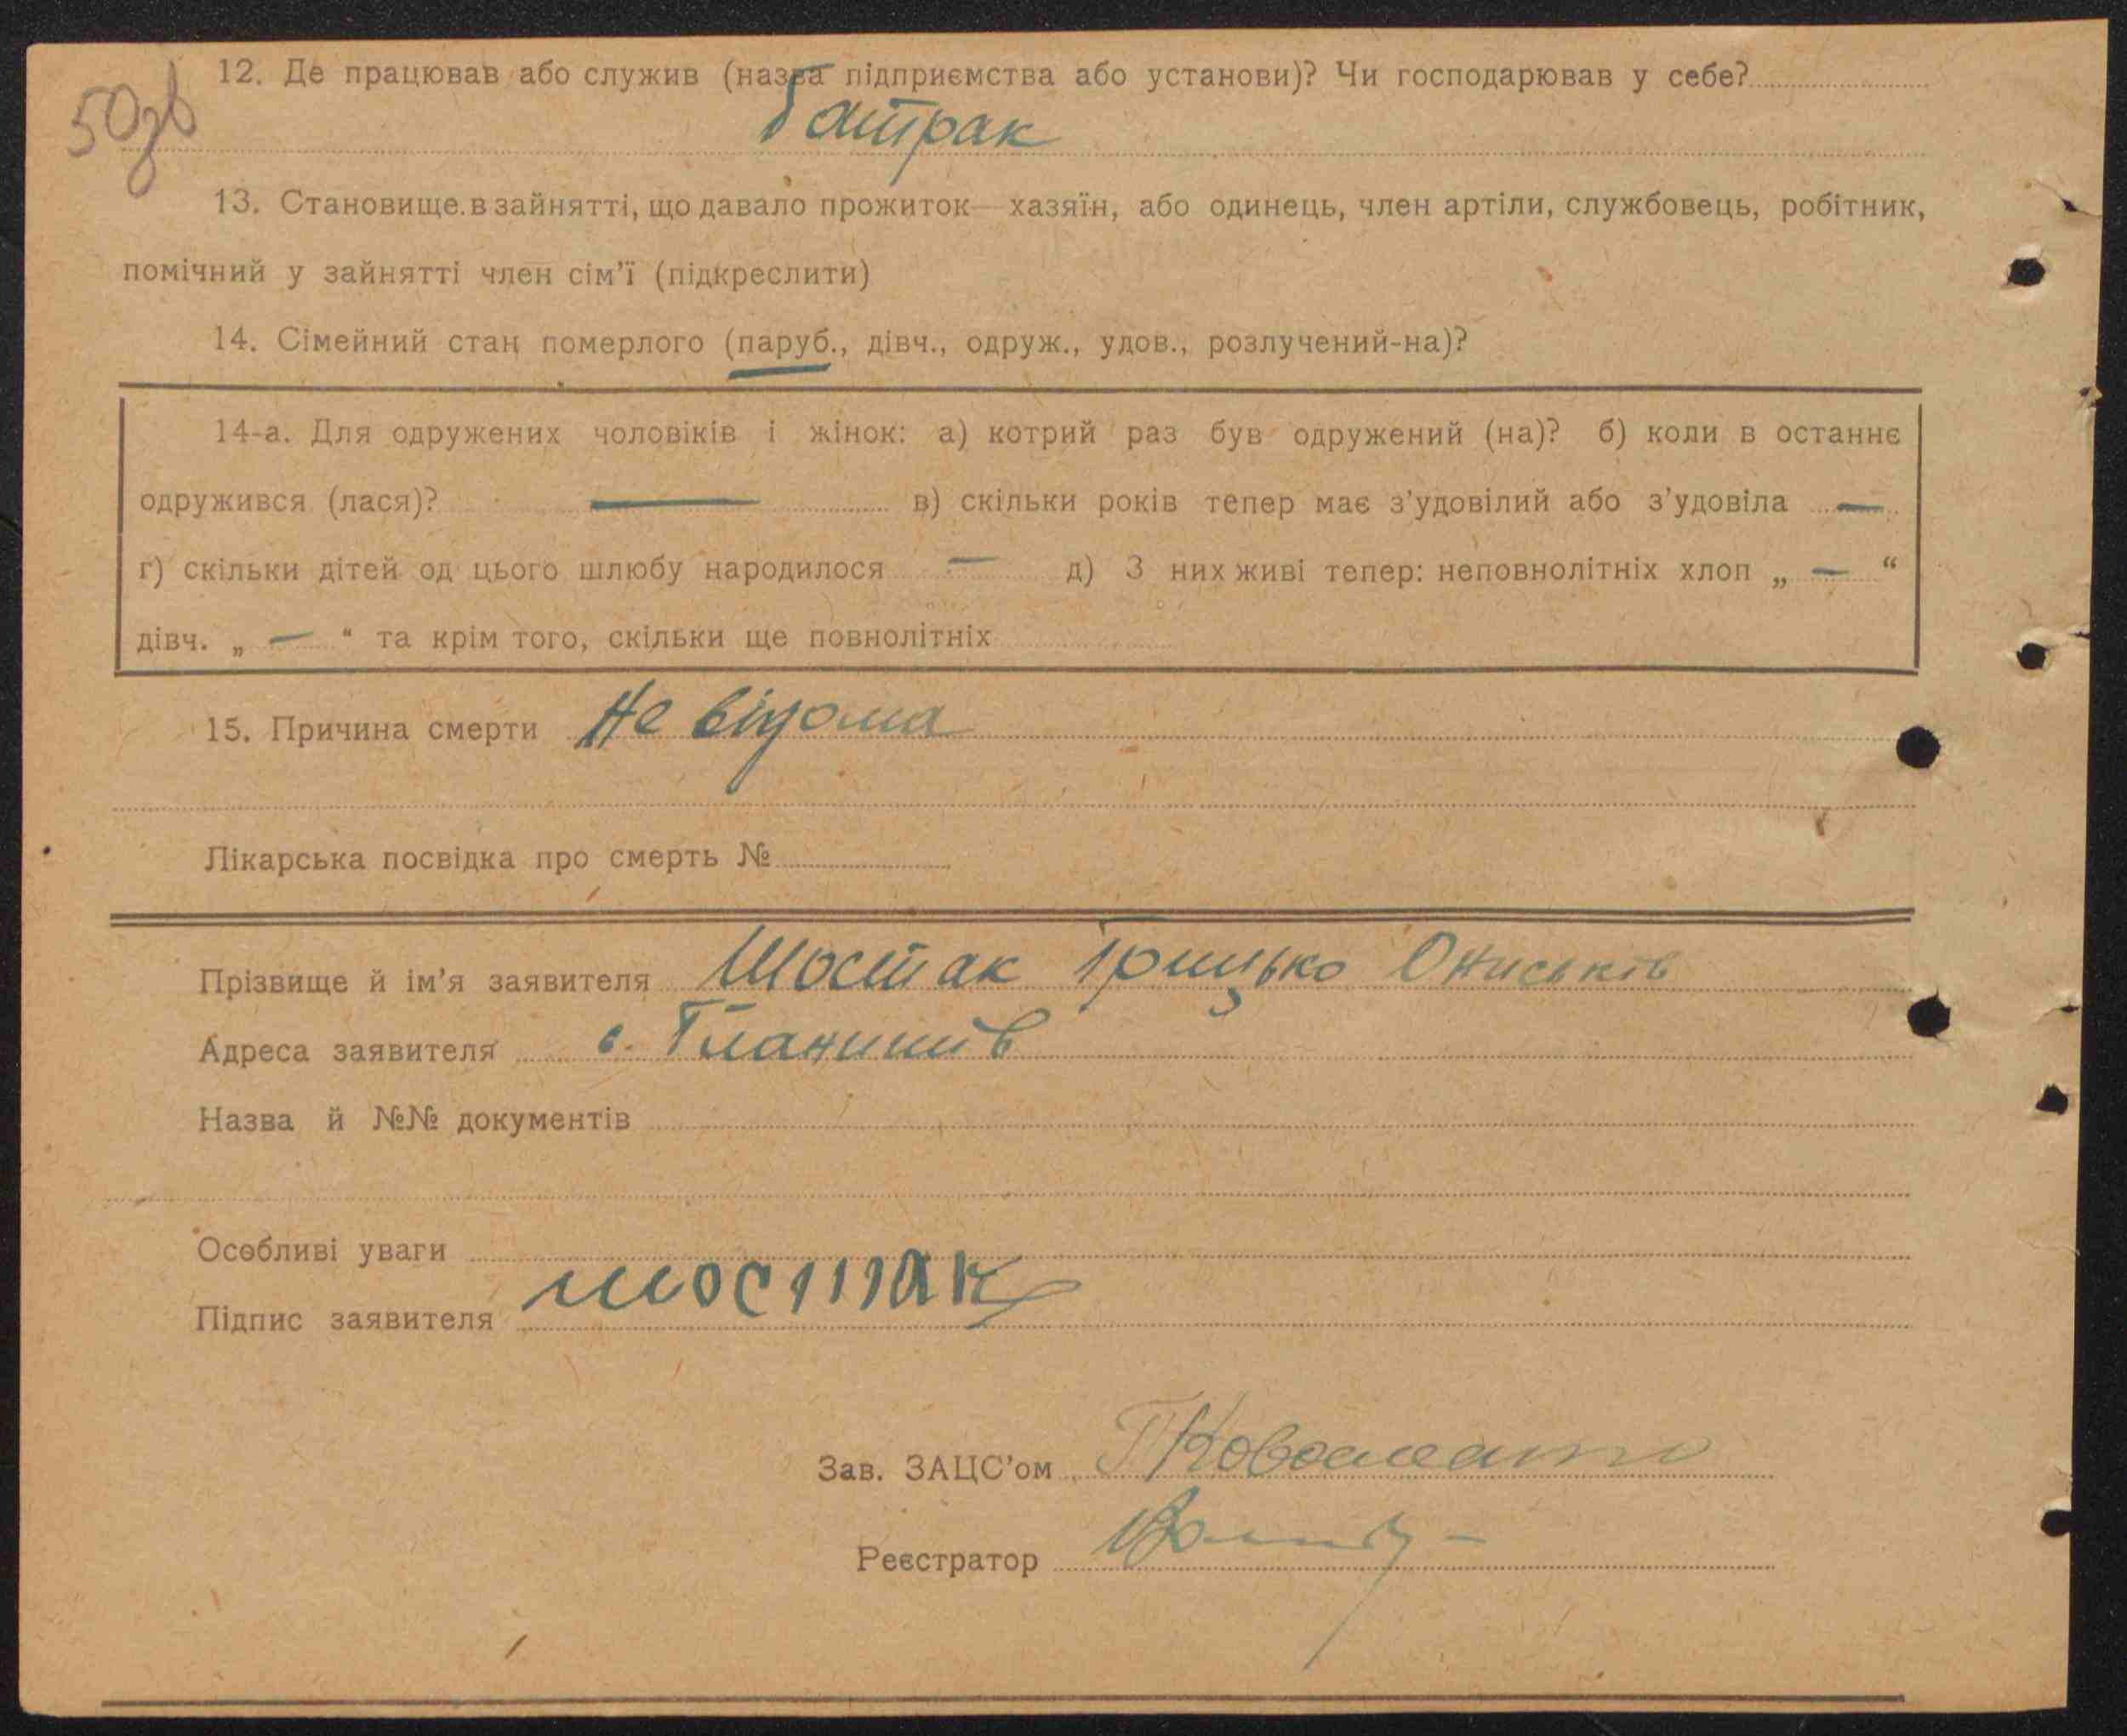 50зв
12. Де працював або служив (назва підприємства або установи)? Чи господарював у себе?
батрак
13. Становище в зайнятті, що давало прожиток— хазяїн, або одинець, член артіли, службовець, робітник,
помічний у зайнятті член сім’ї (підкреслити)
14. Сімейний стан померлого (паруб., дівч., одруж., удов., розлучений-на)?
14-а. Для одружених чоловіків і жінок: а) котрий раз був одружений (на)? б) коли в останнє
одружився (лася)? — в) скільки років тепер має з’удовілий або з’удовіла —
г) скільки дітей од цього шлюбу народилося — д) З них живі тепер: неповнолітніх хлоп „ — “
дівч. „ — “ та крім того, скільки ще повнолітніх
15. Причина смерти Не відома
Лікарська посвідка про смерть №
Прізвище й ім’я заявителя Шостак Грицько Ониськів
Адреса заявителя с. Гланишів
Назва й №№ документів
Особливі уваги
Підпис заявителя шостак
Зав. ЗАЦС’ом
Реєстратор